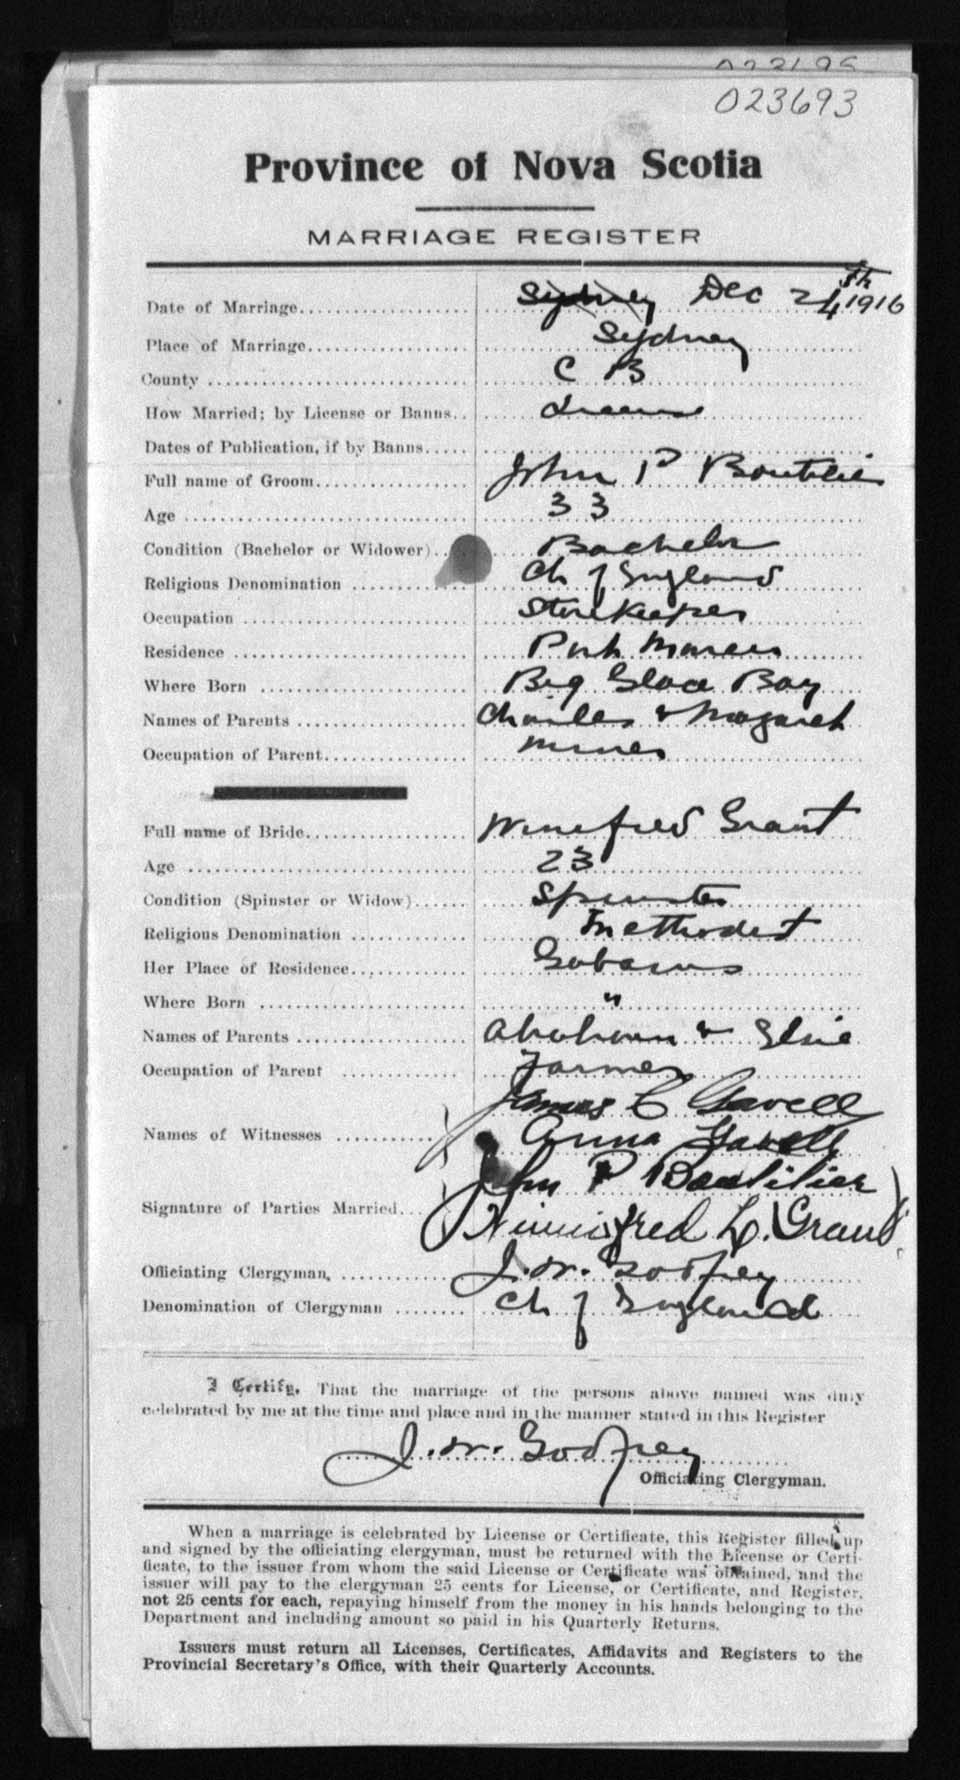 023693
Province of Nova Scotia
MARRIAGE REGISTER
Date of Marriage Sydney Dec 24th 1916
Place of Marriage Sydney
County C B
How Married; by License or Banns License
Dates of Publication, if by Banns
Full name of Groom John P Boutilier
Age 33
Condition (Bachelor or Widower) Bachelor
Religious Denomination Ch of England
Occupation Storekeeper
Residence Port Morien
Where Born Big Glace Bay
Names of Parents Charles & Magaret
Occupation of Parent Miner
Full name of Bride Winefred Grant
Age 23
Condition (Spinster or Widow) Spinster
Religious Denomination Methodist
Her Place of Residence Gabarus
Where Born "
Names of Parents Abraham & Elsie
Occupation of Parent Farmer
James C
Names of Witnesses Anna
John P Boutilier
Signature of Parties Married
Winnifred L. Grant
Officiating Clergyman, J. W. Godfrey
Denomination of Clergyman Ch of England
I Certify, That the marriage of the persons above named was duly
celebrated by me at the time and place and in the manner stated in this Register
J. W. Godfrey
Officiating Clergyman.
When a marriage is celebrated by License or Certificate, this Register filled up
and signed by the officiating clergyman, must be returned with the License or Certi-
ficate, to the issuer from whom the said License or Certificate was obtained, and the
issuer will pay to the clergyman 25 cents for License, or Certificate, and Register,
not 25 cents for each, repaying himself from the money in his hands belonging to the
Department and including amount so paid in his Quarterly Returns.
Issuers must return all Licenses, Certificates, Affidavits and Registers to the
Provincial Secretary's Office, with their Quarterly Accounts.